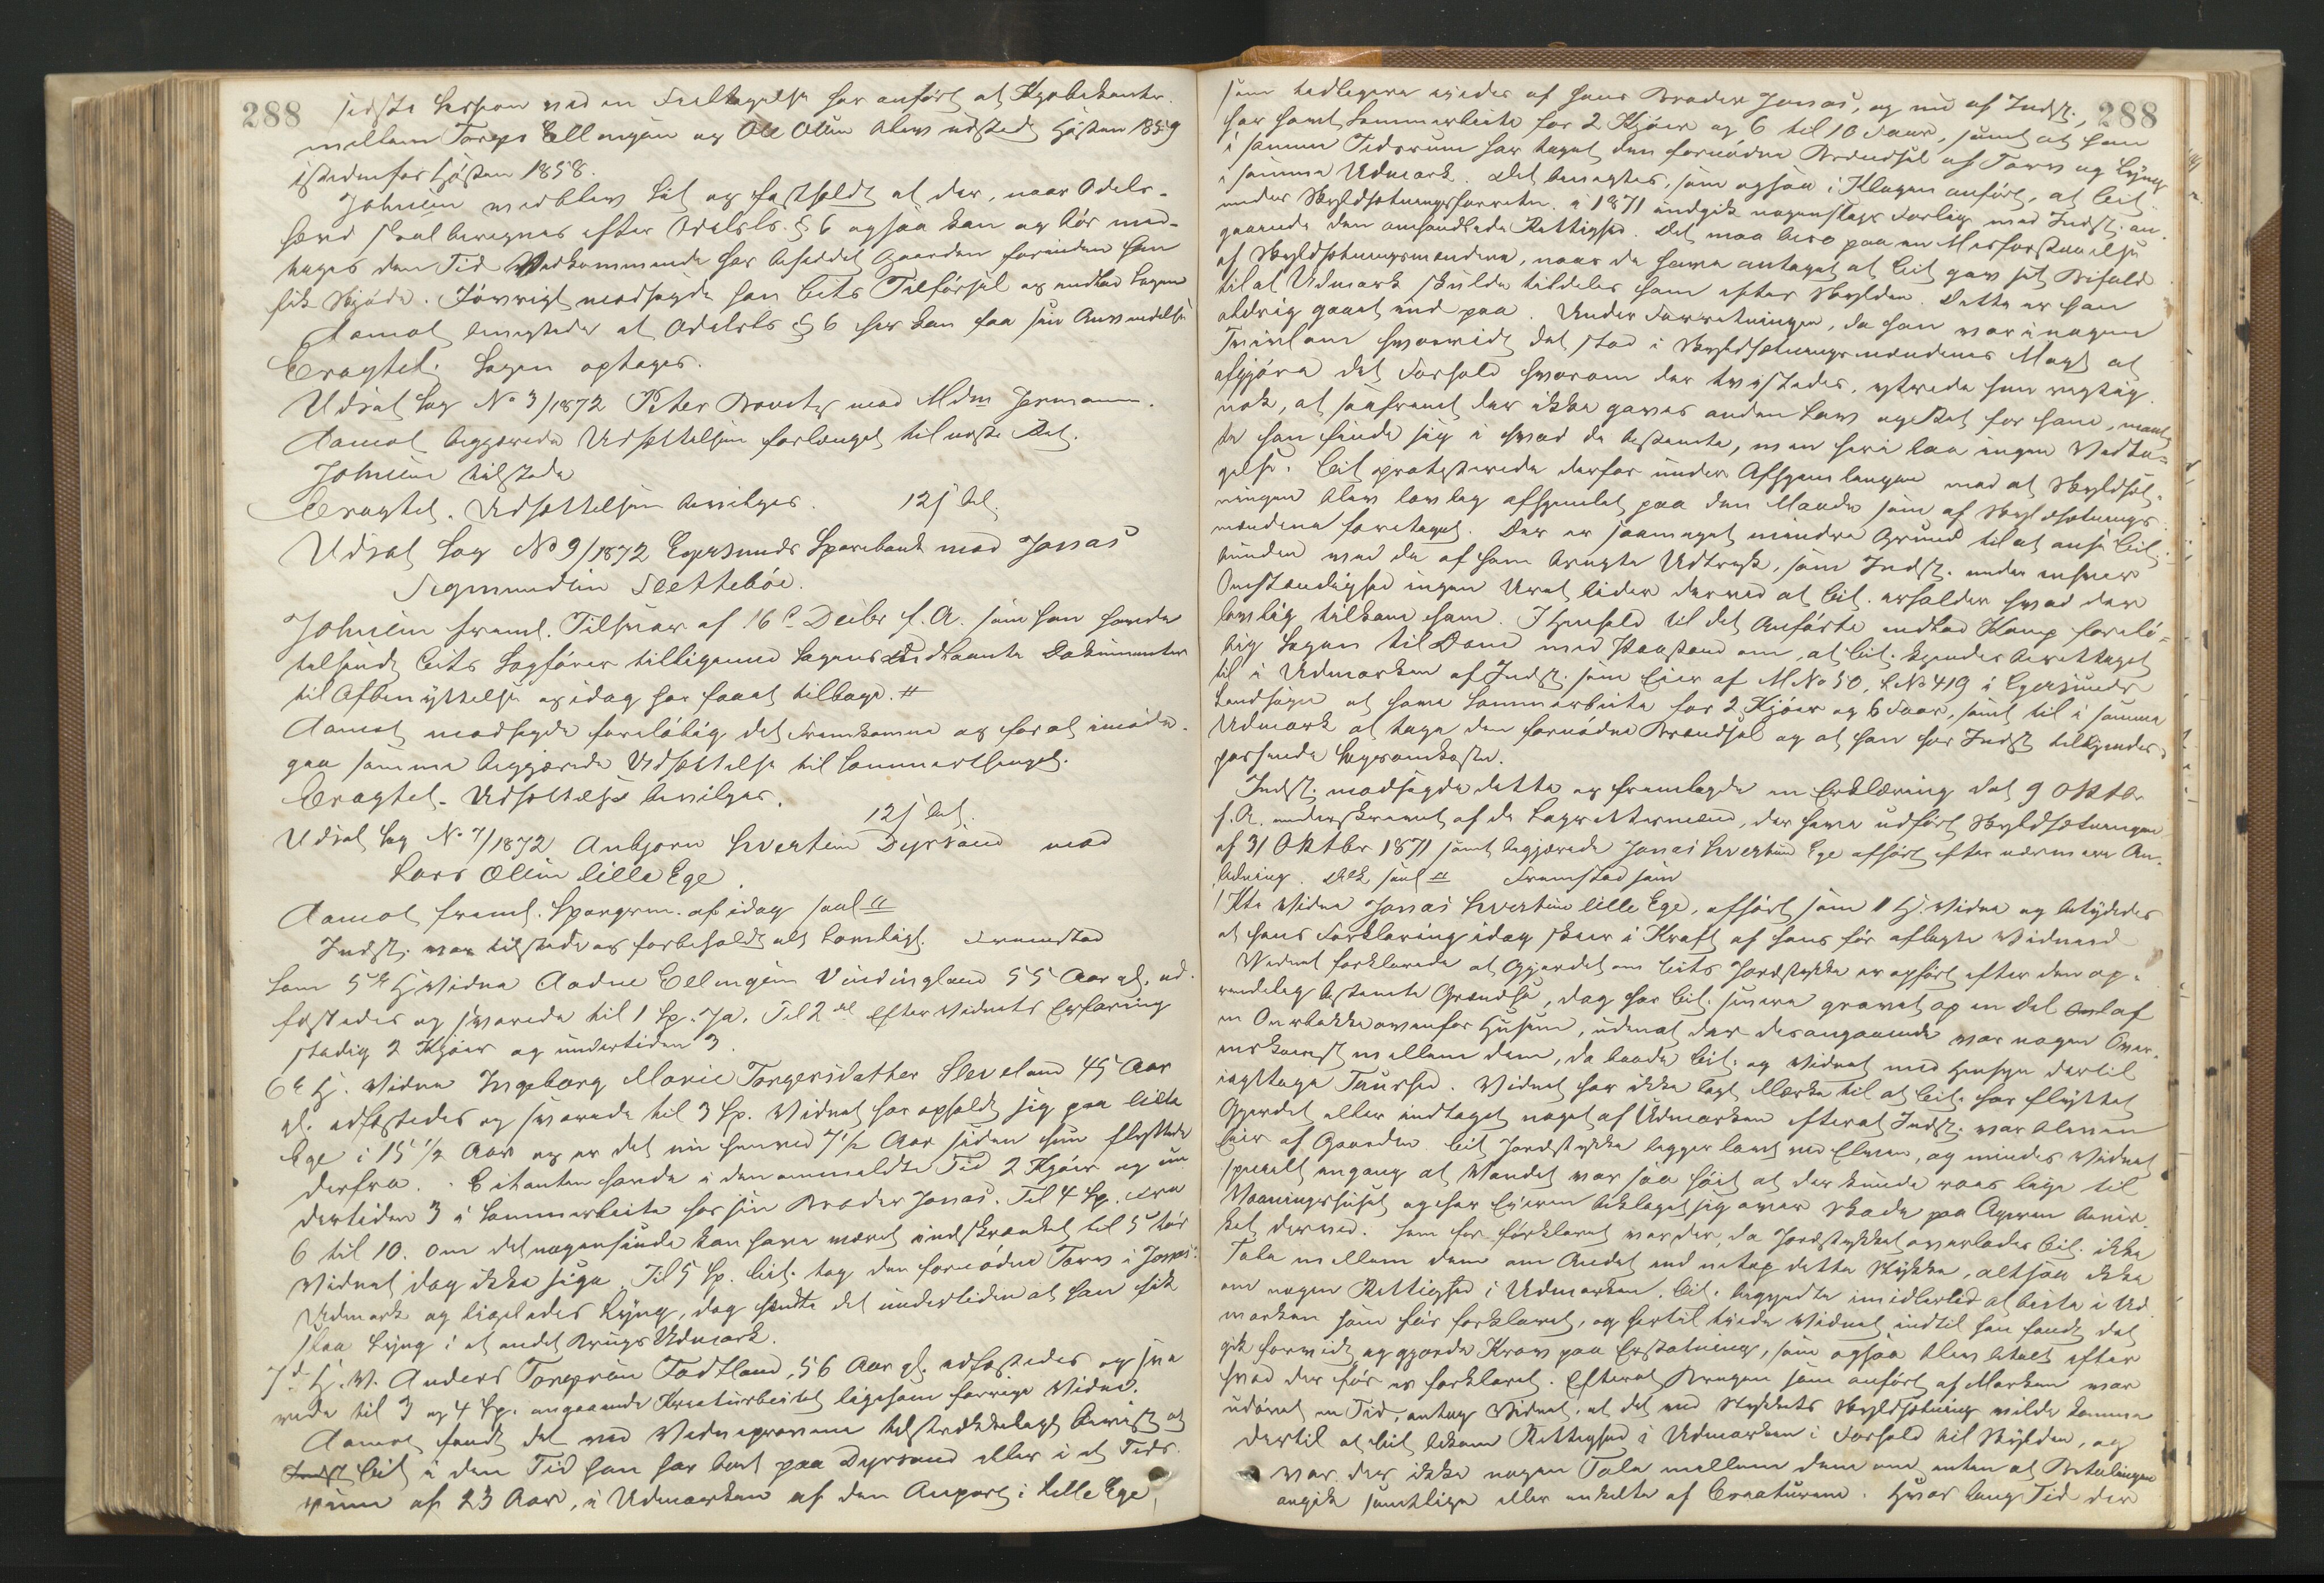 288
sidste Session ved en Feiltagelse har anført at Kjøbekontr.
mellem Torger Ellingsen og Ole Olsen blev udstedt Høsten 1859
istedenfor Høsten 1858.
Johnsen vedblev Sit og fastholdt at der, naar Odels-
hævd skal beregnes efter Odelsls. § 6 ogsaa kan og bør med-
tages den Tid Vedkommende har besiddet Gaarden forinden han
fik Skjøde. Iøvrigt modsagde han Cits Tilførsel og indlod Sagen
Aamot benegtede at Odelsls § 6 her kan faa sin Anvendelse
Eragtet: Sagen optages.
Udsat Sag No 3/1872 Peter mod Mdm Jermann.
Aamot begjærede Udsættelsen forlænget til næste Ret.
Johnsen tilstede
Eragtet. Udsættelsen bevilges. 12 j bet.
Udsat Sag No 9/1872 Egersunds Sparebank mod Jonas
Sigmundsen Slettebøe.
Johnsen freml. Tilsvar af 16de Decbr f. A. som han havde
tilsendt Cits Sagfører tilligemed Sagens Dokumenter
til Afbenyttelse og idag har faaet tilbage. #
Aamot modsagde foreløbig det Fremkomne og for at imøde-
gaa samme begjærede Udsættelse til Sommerthinget.
Eragtet. Udsættelse bevilges.
12 j bet.
Udsat Sag No 7/1872 Anbjørn Sivertsen Dyrsand mod
Lars Olsen lille Ege
Aamot freml. Spørgsm. af idag saal #
Indst. var tilstede og forbeholdt alt Lovligt. Fremstod
som 5te H. Vidne Aadne Ellingsen Vindingland 55 Aar gl. ed-
fæstedes og svarede til 1 Sp. Ja. Til 2det Efter Vidnets Erfaring
stadig 2 Kjøer og undertiden 3.
6te H. Vidne Ingeborg Marie Torgersdatter Sleveland 45 Aar
gl. edfæstedes og svarede til 3 Sp. Vidnet har opholdt sig paa lille
Ege i 15 1/2 Aar og er det nu henved 7 1/2 Aar siden hun flyttede
derfra. Citanten havde i den ommeldte Tid 2 Kjøer og un
dertiden 3 i Sommerbeite hos sin Broder Jonas. Til 4 Sp. Fra
6 til 10. Om det nogensinde kan have været indskrænket til 5 tør
Vidnet dog ikke sige. Til 5 Sp. Cit. tog den fornødne Torv i Jonas's
Udmark og ligeledes Lyng, dog hændte det undertiden at han fik
slaa Lyng i et andet Brugs Udmark.
7de H. V. Anders Torgersen Todtland, 56 Aar gl. edfæstedes og sva
rede til 3 og 4 Sp. angaaende Kreaturbeitet ligesom forrige Vidne.
Aamot fandt det ved Vidneprovene tilstrækkeligt bevist at
Cit i den Tid han har boet paa Dyrsand eller i et Tids-
rum af 23 Aar, i Udmarken af den Anpart i Lille Ege,
288
som tidligere eiedes af hans Broder Jonas, og nu af Indst.,
har havt Sommerbeite for 2 Kjøer og 6 til 10 Faar, samt at han
i samme Tidsrum har taget den fornødne Brændsel af Torv og Lyng
i samme Udmark. Det benegtes, som ogsaa i Klagen anført, at Cit.
under Skyldsætningsforretn. i 1871 indgik nogenslags Forlig med Indst. an-
gaaende den omhandlede Rettighed. Det maa bero paa en Misforstaaelse
af Skyldsætningsmændene, naar de have antaget at Cit gav sit Bifald
til at Udmark skulde tildeles ham efter Skylden. Dette er han
aldrig gaaet ind paa. Under Forretningen, da han var i nogen
Tvivl om hvorvidt det stod i Skyldsætningsmændenes Magt at
afgjøre det Forhold hvorom der tvistedes, ytrede han rigtig-
nok, at saafremt der ikke gaves anden Lov og Ret for ham, maat
te han finde sig i hvad de bestemte, men heri laa ingen Vedta-
gelse. Cit protesterede derfor under Afhjemlingen mod at Skyldsæt-
ningen blev lovlig afhjemlet paa den Maade som af Skyldsætnings-
mændene foretaget. Der er saameget mindre Grund til at anse Cit.
bunden ved de af ham brugte Udtryk, som Indst. under enhver
Omstændighed ingen Uret lider derved at Cit. erholder hvad der
lovlig tilkom ham. I Henhold til det Anførte indlod Komp. forelø-
big Sagen til Dom med Paastand om, at Cit. kjendes berettiget
til i Udmarken af Indst. som Eier af M No 50, L No 419 i Egersunds
Landsogn at have Sommerbeite for 2 Kjøer og 6 Faar, samt til i samme
Udmark at tage den fornødne Brændsel og at han hos Indst tilkjendes
passende Sagsomkostn.
Indst. modsagde dette og fremlagde en Erklæring dat 9 Oktbr
f. A. underskrevet af de Lagrettemænd, der have udført Skyldsætningen
af 31 Oktbr 1871 samt begjærede Jonas Sivertsen Ege afhørt efter nærmere An-
ledning. Erkl. saal # Fremstod som
1ste Vidne Jonas Sivertsen lille Ege, afhørt som 1 H. Vidne og betydedes
at hans Forklaring idag skeer i Kraft af hans før aflagte Vidneed
Vidnet forklarede at Gjerdet om Cits Jordstykke er opført efter den op-
rindelig bestemte Grændse, dog har Cit. senere gravet op en Del af
en Ourbakke ovenfor Husene, uden at der desangaaende var nogen Over-
enskomst mellem dem, da baade Cit. og Vidnet med Hensyn dertil
iagttage Taushed. Vidnet har ikke lagt Mærke til at Cit. har flyttet
Gjerdet eller indtaget noget af Udmarken efterat Indst. var bleven
Eier af Gaarden. Cit Jordstykke ligger lavt ved Elven, og mindes Vidnet
specielt engang at Vandet var saa høit at der kunde roes lige til
Vaaningshuset og har Eieren beklaget sig over Skade paa Ageren bevir-
ket derved. Som før forklaret var der, da Jordstykket overlodes Cit. ikke
Tale mellem dem om Andet end netop dette Stykke, altsaa ikke
om nogen Rettighed i Udmarken. Cit. begyndte imidlertid at beite i Ud
marken som før forklaret, og hertil tiede Vidnet, indtil han fandt det
gik for vidt og gjorde Krav paa Erstatning, som ogsaa blev betalt efter
hvad der før er forklaret. Efterat Brugen som anført af Marken var
udøvet en Tid, antog Vidnet, at det ved Stykkets Skyldsætning vilde komme
dertil at Cit bekom Rettighed i Udmarken i Forhold til Skylden, og
var der ikke nogen Tale mellem dem om, enten at Betalingen
angik samtlige eller enkelte af Creaturene. Hvor lang Tid der